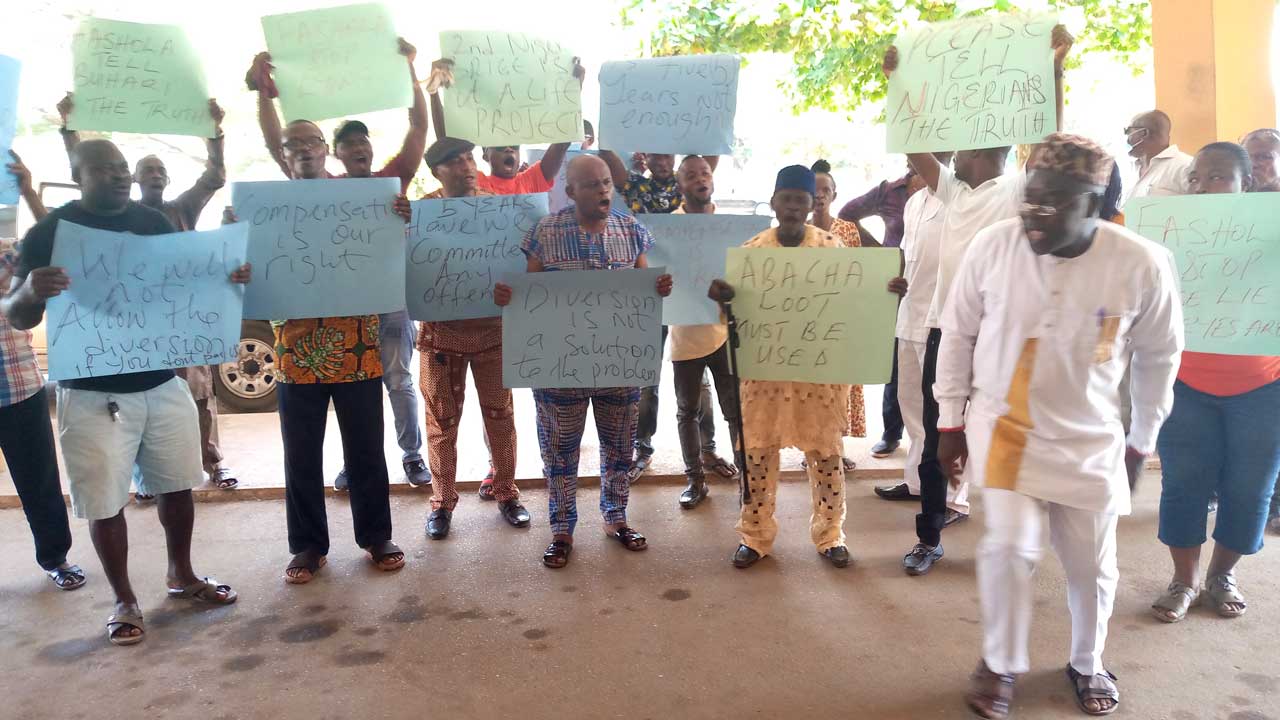 FASHOLA
TELL
BUHARI
THE TRUTH
FASHOLA
2nd Niger
PROJECT
Years not
enough
PLEASE
TELL
NIGERIANS
THE TRUTH
We will
not
Allow the
diversion
if You dont pay us
Compensati
is our
right
5 YEARS
Have We
Committed
Any
offen
Diversion is not
a solution
to the problem
ABACHA
LOOT
MUST BE
USED
FASHOL
STOP
LIE